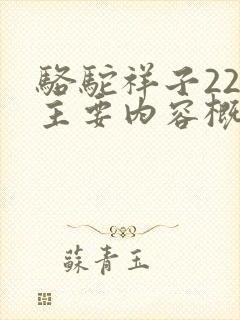 駱駝祥子22
主要內容概
蘇青玉